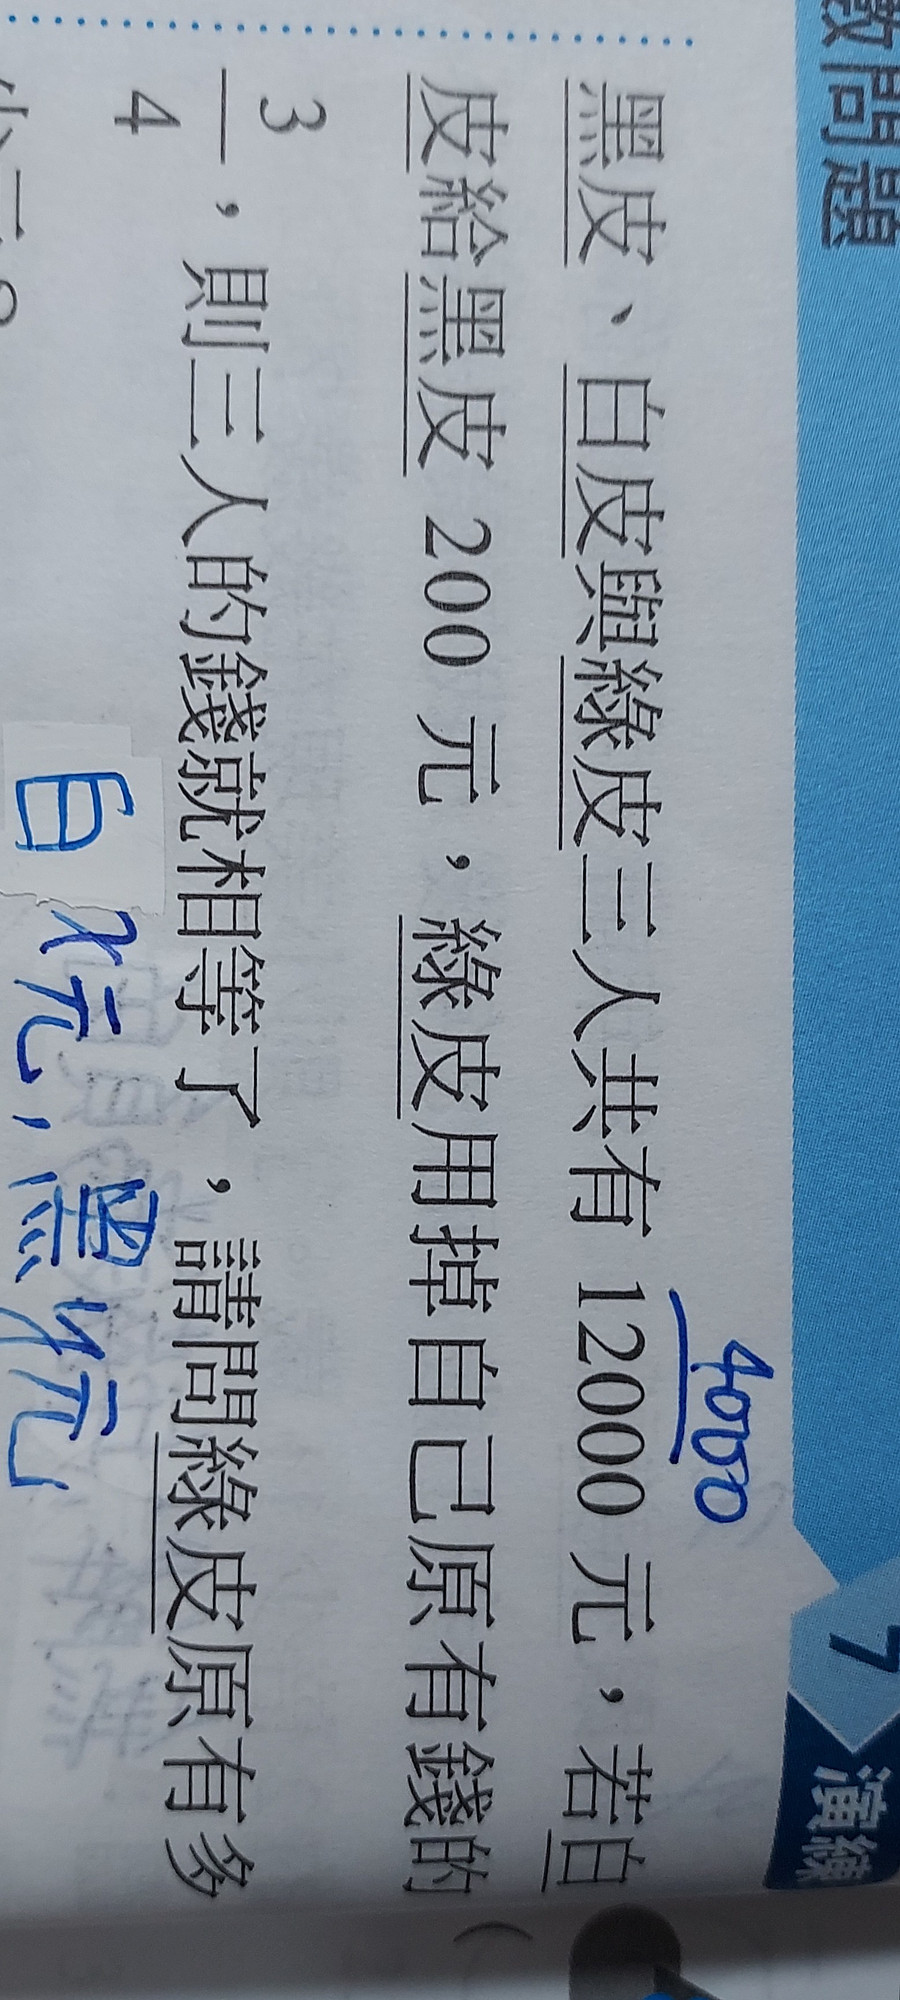 數問題
7
演練
4000
黑皮、白皮與綠皮三人共有 12000 元，若白
皮給黑皮 200 元，綠皮用掉自己原有錢的
3
4
，則三人的錢就相等了，請問綠皮原有多
白 元，黑 元